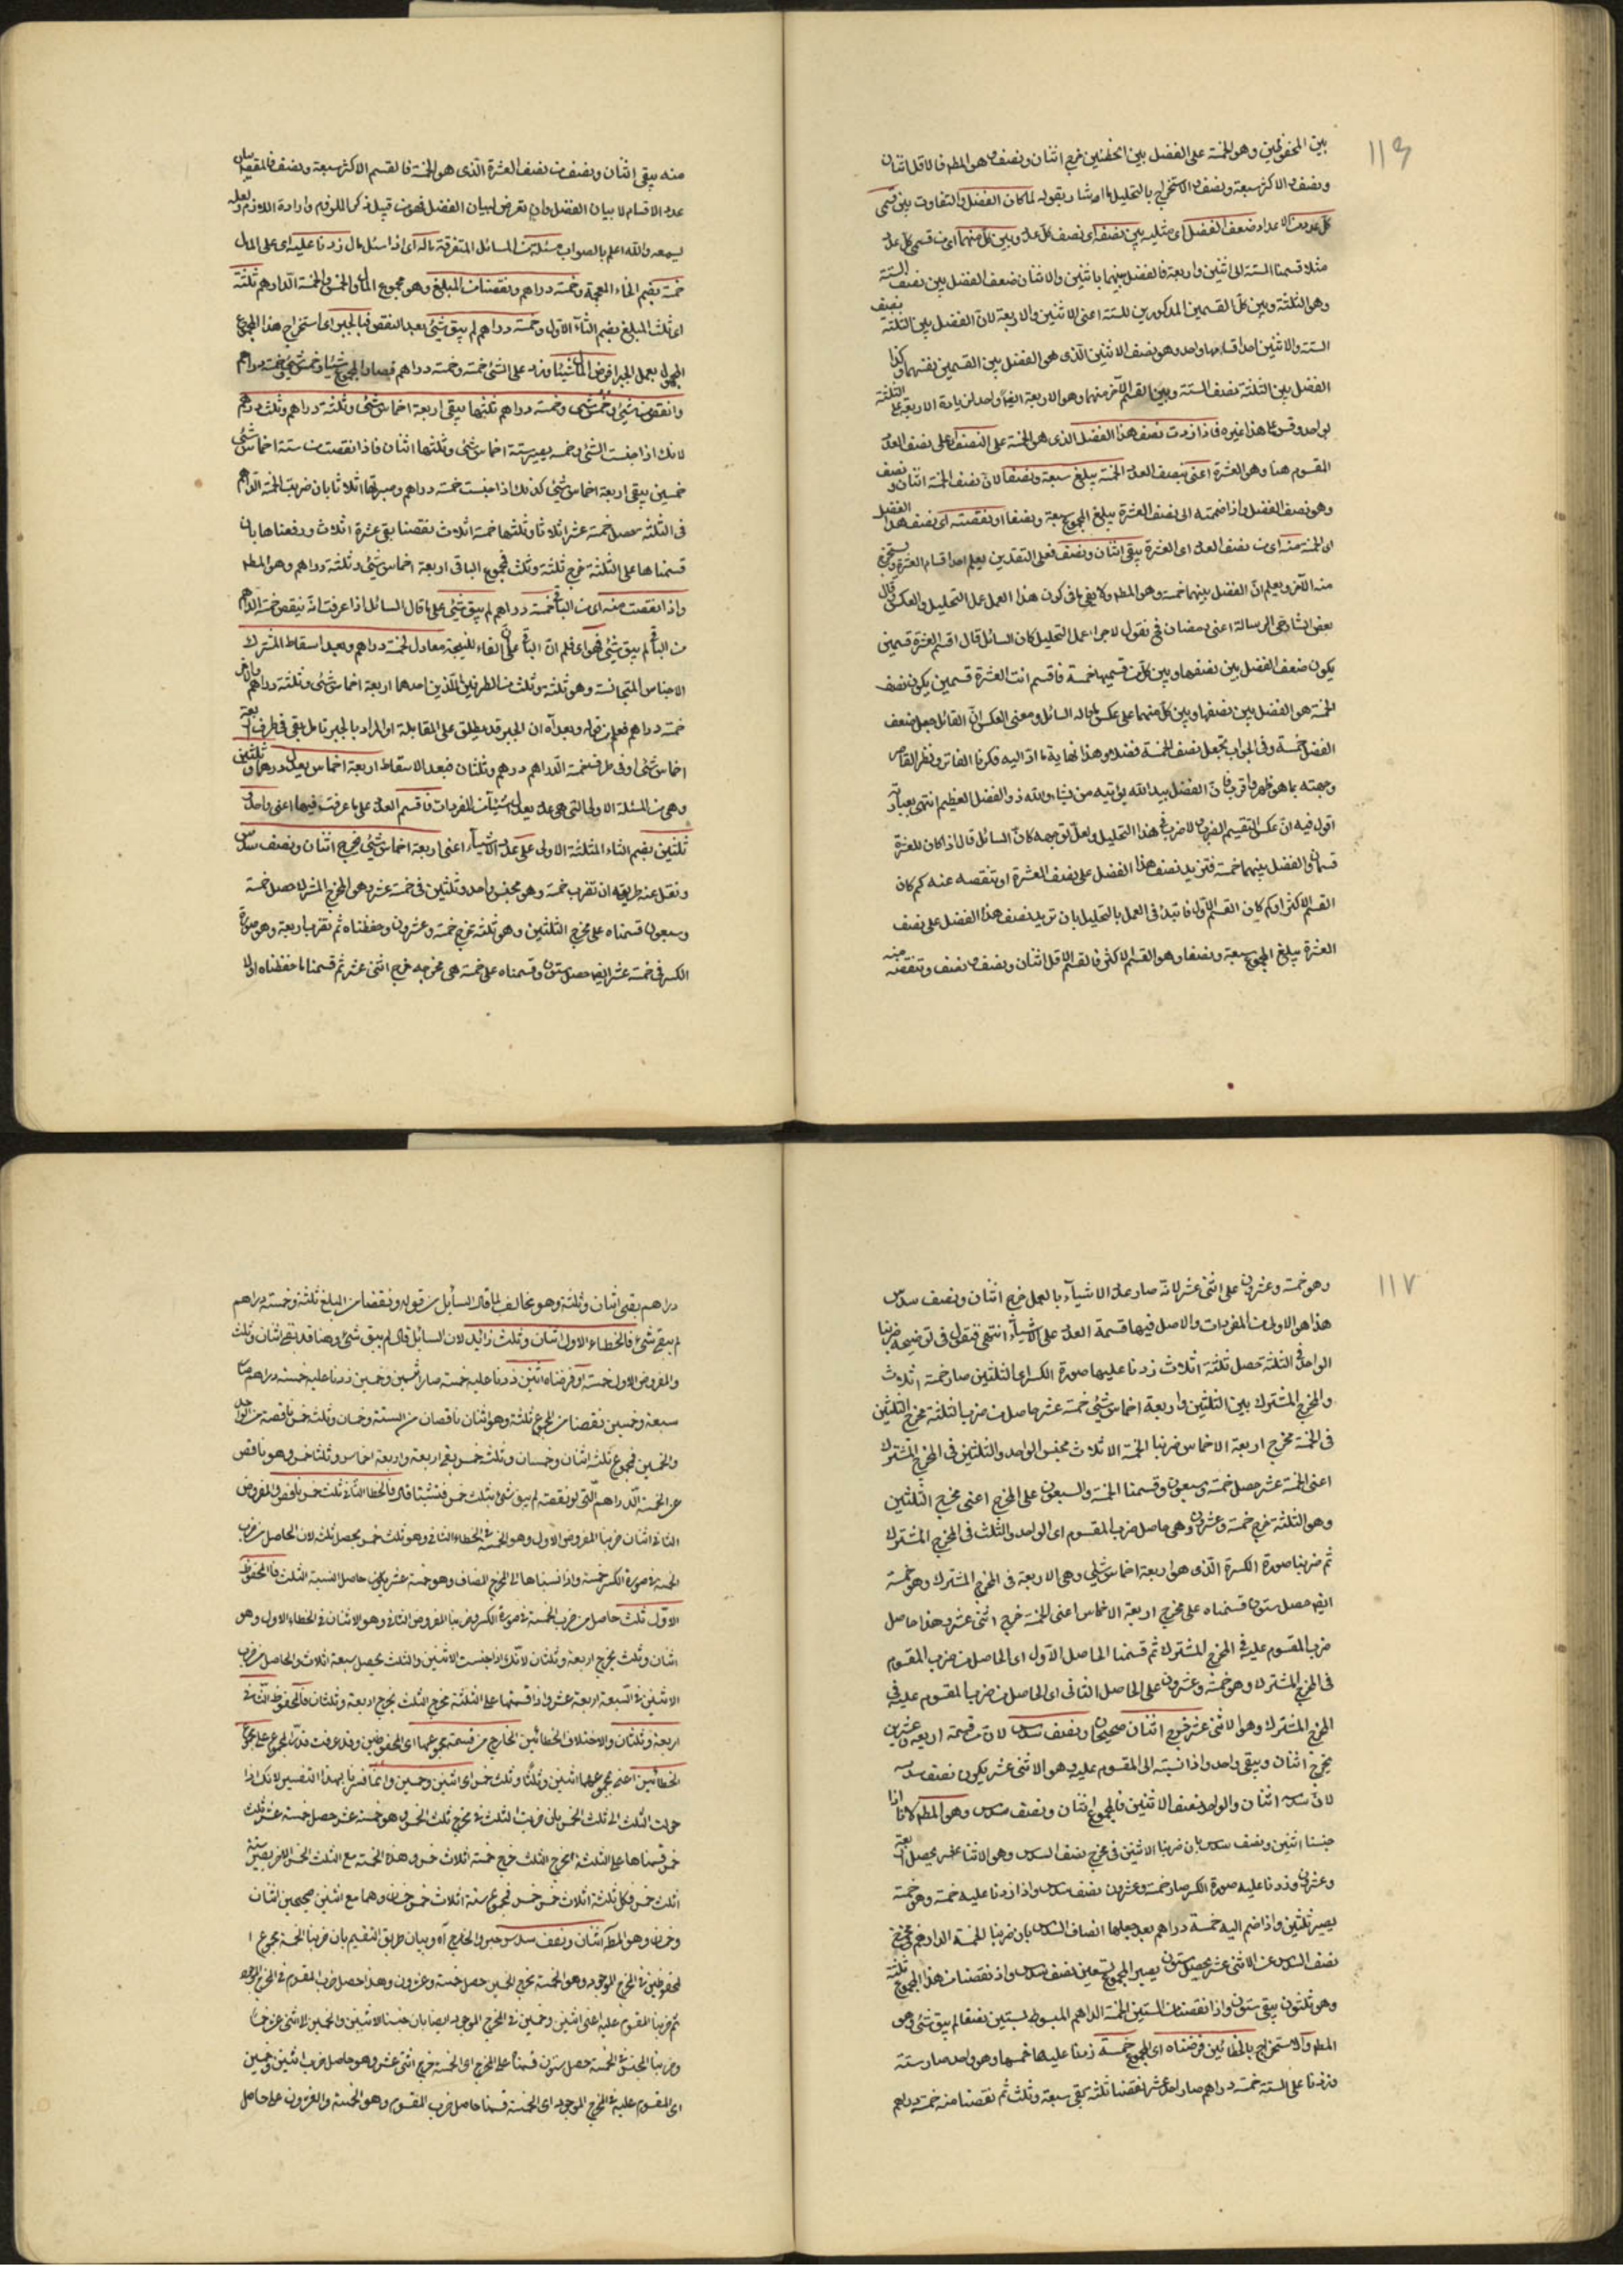 ١١٦
بين المحفوظين وهو الخمسة على الفضل بين الخطئين خرج اثنان ونصف وهو المط فالاقل اثنان
ونصف والاكثر سبعة ونصف والاستخراج بالتحليل ما اشار بقوله لما كان الفضل والتفاوت بين قسمى
كل عدد من الاعداد ضعف الفضل اى مثليه بين نصفه اى نصف كل عدد وبين كل منهما اى من قسمى كل عدد
مثلا قسمنا الستة الى اثنين واربعة فالفضل بينهما باثنين والاثنان ضعف الفضل بين نصف الستة
وهى الثلثة وبين كل القسمين المذكورين للستة اعنى الاثنين والاربعة لان الفضل بين الثلثة نصف
الستة والاثنين احد اقسامها واحد وهو نصف الاثنين الذى هى الفضل بين القسمين نفسهما وكذا
الفضل بين الثلثة نصف الستة وبين القسم الآخر منهما وهو الاربعة ايضا واحد لزيادة الاربعة على الثلثة
بواحد وقس على هذا غيره فاذا زدت نصف هذا الفضل الذى هى الخمسة على النصف اى على نصف العدد
المقسوم هنا وهو العشرة اعنى بنصف العدد الخمسة يبلغ سبعة ونصفا لان نصف الخمسة اثنان ونصف
وهو نصف الفضل واذا ضممته الى نصف العشرة يبلغ المجموع سبعة ونصفا او نقصته اى نصف هذا الفضل
اى الخمسة منه اى من نصف العدد اى العشرة يبقى اثنان ونصف فعلى التقدرين يعلم احد اقسام العشرة ويستخرج
منه الآخر ويعلم ان الفضل بينهما خمسة وهو المط ولا يخفى ما فى كون هذا العمل عمل التحليل والعكس قال
بعض شارحى الرسالة اعنى رمضان فح نقول لاجراء عمل التحليل كان السائل قال اقسم العشرة قسمين
يكون ضعف الفضل بين نصفها وبين كل من قسميها خمسة فاقسم انت العشرة قسمين يكون نصف
الخمسة هو الفضل بين نصفها وبين كل منهما على عكس ما قاله السائل ومعنى العكس ان القائل جعل ضعف
الفضل خمسة وفى الجواب تجعل نصف الخمسة فضلا وهذا نهاية ما اد اليه فكرنا الفاتر ونظر القاصر
وجهته بما هو ظهر واقرب فان الفضل بيد الله يؤتيه من يشاء والله ذو الفضل العظيم انتهى بعبارته
اقول فيه ان عكس التقسيم الضرب لا ضرب فى هذا التحليل ولعل توجيهه كان السائل قال اذا كان للعشرة
قسمان والفضل بينهما خمسة فتزيد نصف هذا الفضل على نصف العشرة او تنقصه عنه كم كان
القسم الاكثر او كم كان القسم الاول فابتدئ فى العمل بالتحليل بان تزيد نصف هذا الفضل على نصف
العشرة يبلغ المجموع سبعة ونصفا وهو القسم الاكثر فالقسم الاقل اثنان ونصف ونصف وتنقصه منه
منه يبقى اثنان ونصف من نصف العشرة الذى هو الخمسة فالقسم الاكثر سبعة ونصف فالمقصد بيان
عدد الاقسام لا بيان الفضل وان تعرض لبيان الفضل فهو من قبيل ذكر الملزوم وارادة اللازم ولعله
ليسمعه والله اعلم بالصواب مسئلة من المسائل المتفرقة ماله اى اذا سئل مال زدنا عليه اى على المال
خمسه بضم الخاء المعجمة وخمسة دراهم ونقصنا من المبلغ وهو مجموع المال والخمس والخمسة الدارهم ثلثه
اى ثلث المبلغ بضم الثاء الاول وخمسة دراهم لم يبق شيئ بعد النقص فبالجبر اى استخراج هذا المجموع
المجهول بعمل الجبر افرض المال شيئا وزد على الشئ خمسه وخمسة دراهم فصار المجموع شيئا وخمس شيئ وخمسة دراهم
وانقص من شيئ وخمس شيئ وخمسة دراهم ثلثها يبقى اربعة اخماس شيئ وثلثة دراهم وثلث درهم
لانك اذا جنست الشئ وخمسه يصير ستة اخماس شئ وثلثها اثنان فاذا نقصت من ستة اخماس شئ
خمسين يبقى اربعة اخماس شيئ كذلك اذا جنست خمسة دراهم وصيرتها اثلاثا بان ضربت الخمسة الدراهم
فى الثلثة حصل خمسة عشر اثلاثا وثلثها خمسة اثلاث نقصنا بقى عشرة اثلاث ورفعناها بان
قسمناها على الثلثة خرج ثلثة وثلث فمجموع الباقى اربعة اخماس شيئ وثلثة دراهم وهو المط
واذا نقصت منه اى من الباقى خمسة دراهم لم يبق شيئ على ما قال السائل اذا عرفت انه ينقص خمسة الدراهم
من الباقى لم يبق شيئ فهو اى فلم ان الباقى على ان الفاء للنتيجة معادل لخمسة دراهم وبعد اسقاط المشترك
الاجناس المتجانسة وهو ثلثة وثلث من الطرفين الذين احدهما اربعة اخماس شئ وثلثة دراهم والآخر
خمسة دراهم فعلم من قوله وبعد آه ان الجبر قد يطلق على المقابلة او المراد بالجبر تامل يبقى فى طرف اربعة
اخماس شئ وفى طرف خمسة الدراهم درهم وثلثان فبعد الاسقاط اربعة اخماس يعدل درهما وثلثين
وهى من المسئلة الاولى التى هى عدد يعدل اشياء من المفردات فاقسم العدد على ما عرفت فيها اعنى واحد و
ثلثين بضم الثاء المثلثة الاولى على عدد الاشياء اعنى اربعة اخماس شيئ يخرج اثنان ونصف سدس
ونقل عنه طريقه ان تضرب خمسة وهو مجنس واحد وثلثين فى خمسة عشر وهو المخرج المشترك حصل خمسة
وسبعون قسمناه على مخرج الثلثين وهو ثلثة خرج خمسة وعشرون وحفظناه ثم تضرب اربعة وهو صورة
الكسر فى خمسة عشر ايضا حصل ستون وقسمناه على خمسة هى مخرجه خرج اثنى عشر ثم قسمنا ما حفظناه اولا
١١٧
وهو خمسة وعشرون على اثنى عشر لانه صار عدد الاشياء بالعمل خرج اثنان ونصف سدس
هذا هو الاولى من المفردات والاصل فيها قسمة العدد على الاشياء انتهى فنقول فى توضيحه ضربنا
الواحد فى الثلثة تحصل ثلثة اثلاث زدنا عليها صورة الكسر اى الثلثين صار خمسة اثلاث
والمخرج المشترك بين الثلثين واربعة اخماس شيئ خمسة عشر حاصل من ضرب الثلثة مخرج الثلثين
فى الخمسة مخرج اربعة الاخماس ضربنا الخمسة الاثلاث مجنس الواحد والثلثين فى المخرج المشترك
اعنى الخمسة عشر حصل خمسة وسبعون وقسمنا الخمسة والسبعون على المخرج اعنى مخرج الثلثين
وهو الثلثة خرج خمسة وعشرون وهى حاصل ضرب المقسوم اى الواحد والثلث فى المخرج المشترك
ثم ضربنا صورة الكسرة الذى هو اربعة اخماس شئ وهى الاربعة فى المخرج المشترك وهو خمسة
ايضا حصل ستون قسمناه على مخرج اربعة الاخماس اعنى الخمسة خرج اثنى عشر وهذا حاصل
ضرب المقسوم عليه فى المخرج المشترك ثم قسمنا الحاصل الاول اى الحاصل من ضرب المقسوم
فى المخرج المشترك وهو خمسة وعشرون على الحاصل الثانى اى الحاصل من ضرب المقسوم عليه فى
المخرج المشترك وهو الاثنى عشر خرج اثنان صحيحان ونصف سدس لان من قسمة اربعة وعشرين
يخرج اثنان ويبقى واحد واذا نسبته الى المقسوم عليه وهو الاثنى عشر يكون نصف سدسه
لان سدسه اثنان والواحد نصف الاثنين فالمجموع اثنان ونصف سدس وهو المط لانا اذا
جنسنا اثنين ونصف سدس بان ضربنا الاثنين فى مخرج نصف السدس وهو الاثنا عشر يحصل اربعة
وعشرون وزدنا عليه صورة الكسر صار خمسة وعشرون نصف سدس واذا زدنا عليه خمسه وهو خمسة
يصير ثلثين واذا ضم اليه خمسة دراهم بعد جعلها انصاف السدس بان ضربنا الخمسة الدراهم فى مخرج
نصف السدس عنى الاثنى عشر يحصل ستون يصير المجموع تسعين نصف سدس واذ نقصنا من هذا المجموع ثلثه
وهو ثلثون يبقى ستون واذا نقصنا من الستين الخمسة الداهم المبسوط بستين نصفا لم يبق شئ وهو
المط والاستخراج بالخطائين فرضناه اى المجموع خمسة زدنا عليها خمسها وهو واحد صار ستة
وزدنا على الستة خمسة دراهم صار احد عشر نقصنا ثلثه بقى سبعة وثلث ثم نقصنا منه خمسة دراهم
دراهم بقى اثنان وثلثة وهو مخالف لما قال السائل من قوله ونقصنا من المبلغ ثلثه وخمسة دراهم
لم يبق شئ فالخطاء الاول اثنان وثلث زائد لان السائل قال لم يبق شئ وهنا قد بقى اثنان وثلث
والمفروض الاول خمسة او فرضناه اثنين زدنا عليه خمسه صار اثنين وخمسين زدنا عليه خمسة دراهم صار
سبعة وخمسين نقصنا من المجموع ثلثه وهو اثنان ناقصان من الستة وخمسان وثلث خمس ناقصة من الواحد
والخمسين فمجموع ثلثه اثنان وخمسان وثلث خمس بقى اربعة واربعة اخماس وثلثا خمس وهو ناقص
عن الخمسة الدراهم التى لو نقصته لم يبق شئ بثلث خمس فالخطا الثانى ثلث خمس ناقص والمفروض
الثانى اثنان ضربنا المفروض الاول وهو الخمسة فى الخطاء الثانى وهو ثلث خمس يحصل ثلث لان الحاصل من ضرب
الخمسة فى صورة الكسر خمسة واذا نسبناها الى المخرج المضاف وهو خمسة عشر يكون حاصل النسبة الثلث فالمحفوظ
الاول ثلث حاصل من ضرب الخمسة فى صورة الكسر وضربنا المفروض الثانى وهو الاثنان فى الخطاء الاول وهو
اثنان وثلث يخرج اربعة وثلثان لانك اذا جنست الاثنين والثلث يحصل سبعة اثلاث والحاصل من ضرب
الاثنين فى السبعة اربعة عشر واذا قسمتها على الثلثة مخرج الثلث يخرج اربعة وثلثان فالمحفوظ الثانى
اربعة وثلثان والاختلاف الخطائين الخارج من قسمة مجموعهما اى المحفوظين وقد عرفت قدر المجموع على مجموع
الخطائين اعنى مجموعهما اثنين وثلثا وثلث خمس اى اثنين وخمسين وانما فسرنا بهذا التفسير لانك اذا
حولت الثلث الى ثلث الخمس بان ضربت الثلث فى مخرج ثلث الخمس وهو خمسة عشر حصل خمسة عشر ثلث
خمس قسمناها على الثلثة مخرج الثلث خرج خمسة اثلاث خمس وهذه الخمسة مع الثلث الخمس الآخر يصير ستة
اثلث خمس فكل ثلثة اثلاث خمس خمس فمجموع ستة اثلاث خمس خمسان وهما مع اثنين صحيحين اثنان
وخمسان وهو المط اثنان ونصف سدس خبر والخارج آه وبيان طريق التقسيم بان ضربنا الخمسة مجموع ا
لمحفوظين فى المخرج الموجود وهو الخمسة مخرج الخمسين حصل خمسة وعشرون وهذا حاصل ضرب المقسوم فى المخرج الموجود
ثم ضربنا المقسوم عليه اعنى اثنين وخمسين فى المخرج الموجود ايضا بان جنسنا الاثنين والخمسين لاثنى عشر خمسا
وضربنا المجنس فى الخمسة حصل ستون قسمناه على المخرج اى الخمسة خرج اثنى عشر وهو حاصل ضرب اثنين وخمسين
اى المقسوم عليه فى المخرج الموجود اى الخمسة قسمنا حاصل ضرب المقسوم وهو الخمسة والعشرون على حاصل